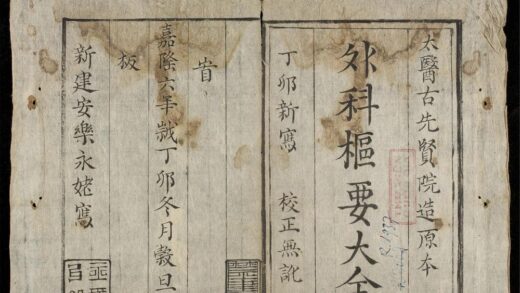 太醫古先賢院造原本
外科樞要大全
丁卯新寫 校正無訛
旹
嘉隆六年歲丁卯冬月穀旦
板
新建安樂永姥寫